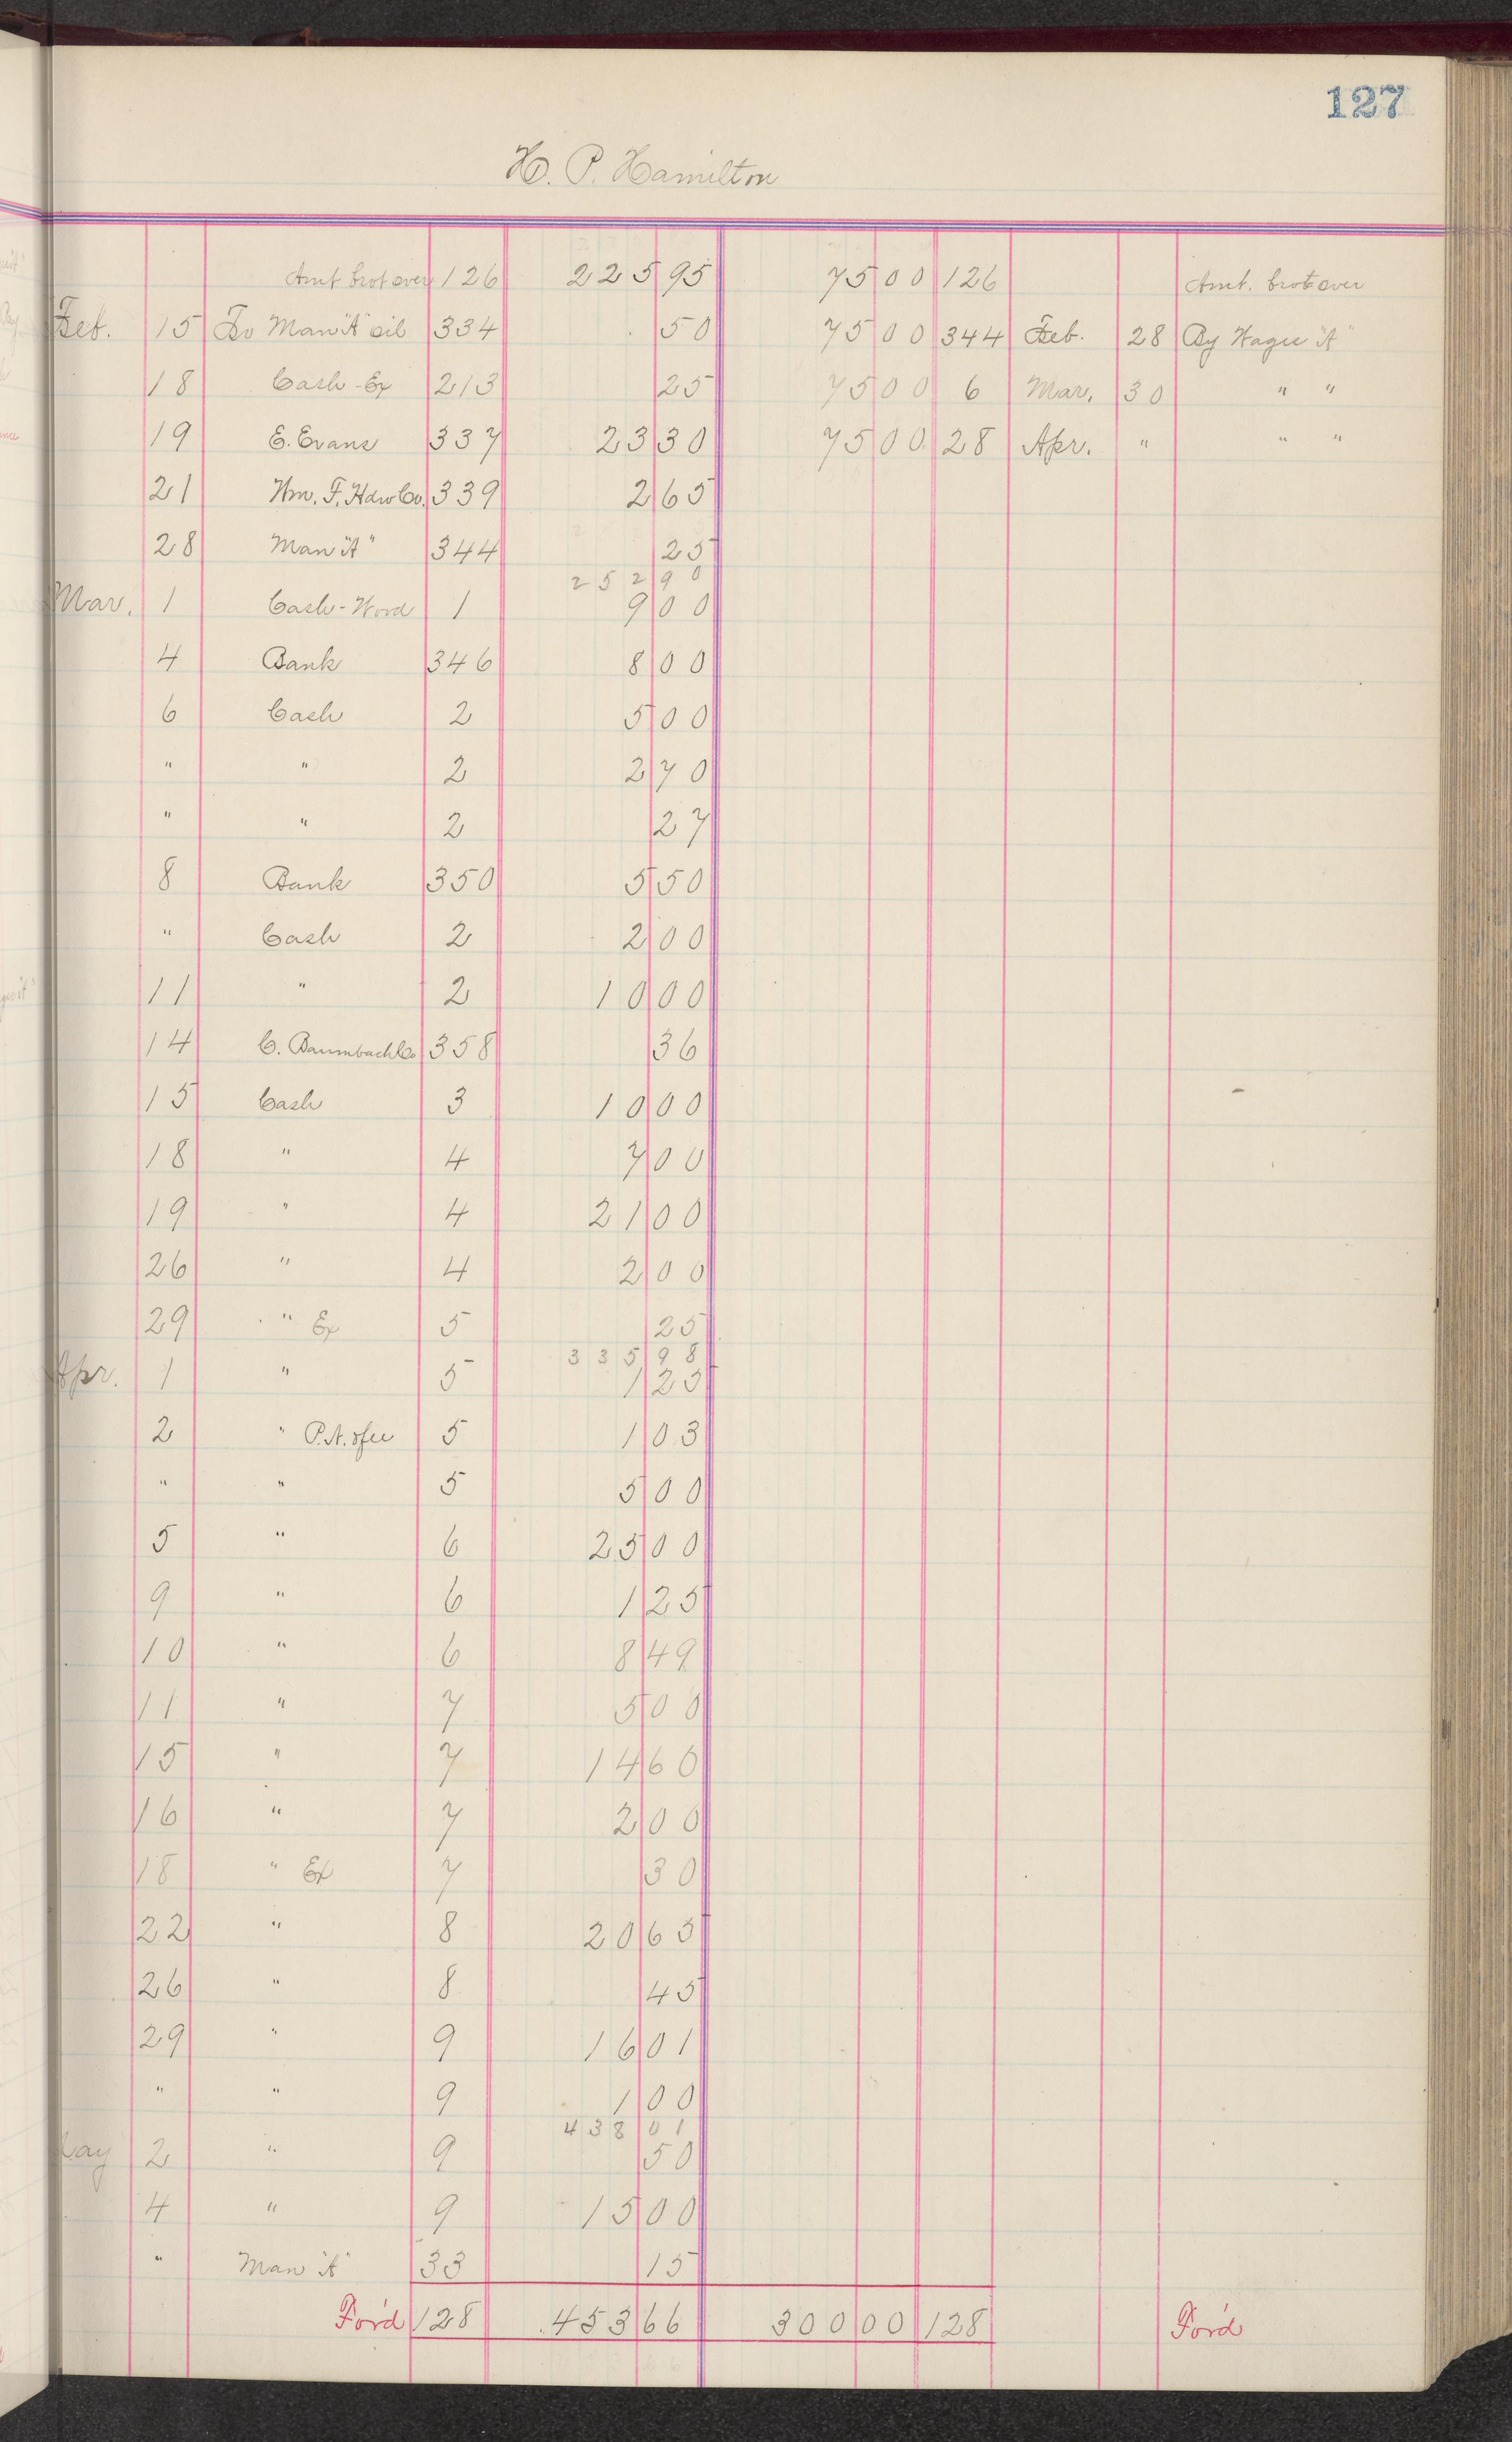 127
H. P. Hamilton
Amt brot over 126 225 95 75 00 126 Amt. brot over
Feb. 15 To Man "A" oil 334 50 75 00 344 Feb. 28 By Wages "A"
18 Cash - Ex 213 25 75 00 6 Mar. 30 " "
19 E. Evans 337 23 30 75 00 28 Apr. " " "
21 Wm. F. Hdw Co. 339 2 65
28 Man "A" 344 25
252 90
Mar. 1 Cash - Wood 1 9 00
4 Bank 346 8 00
6 Cash 2 5 00
" " 2 2 70
" " 2 27
8 Bank 350 5 50
" Cash 2 2 00
11 " 2 10 00
14 C. Baumbach Co 358 36
15 Cash 3 10 00
18 " 4 7 00
19 " 4 21 00
26 " 4 2 00
29 " Ex 5 25
335 98
Apr. 1 " 5 1 25
2 " 5 1 03
" " 5 5 00
5 " 6 25 00
9 " 6 1 25
10 " 6 8 49
11 " 7 5 00
15 " 7 14 60
16 " 7 2 00
18 " Ex 7 30
22 " 8 20 65
26 " 8 45
29 " 9 16 01
" " 9 1 00
438 01
May 2 " 9 50
4 " 9 15 00
" Man "A" 33 15
For'd 128 453 66 300 00 128 For'd